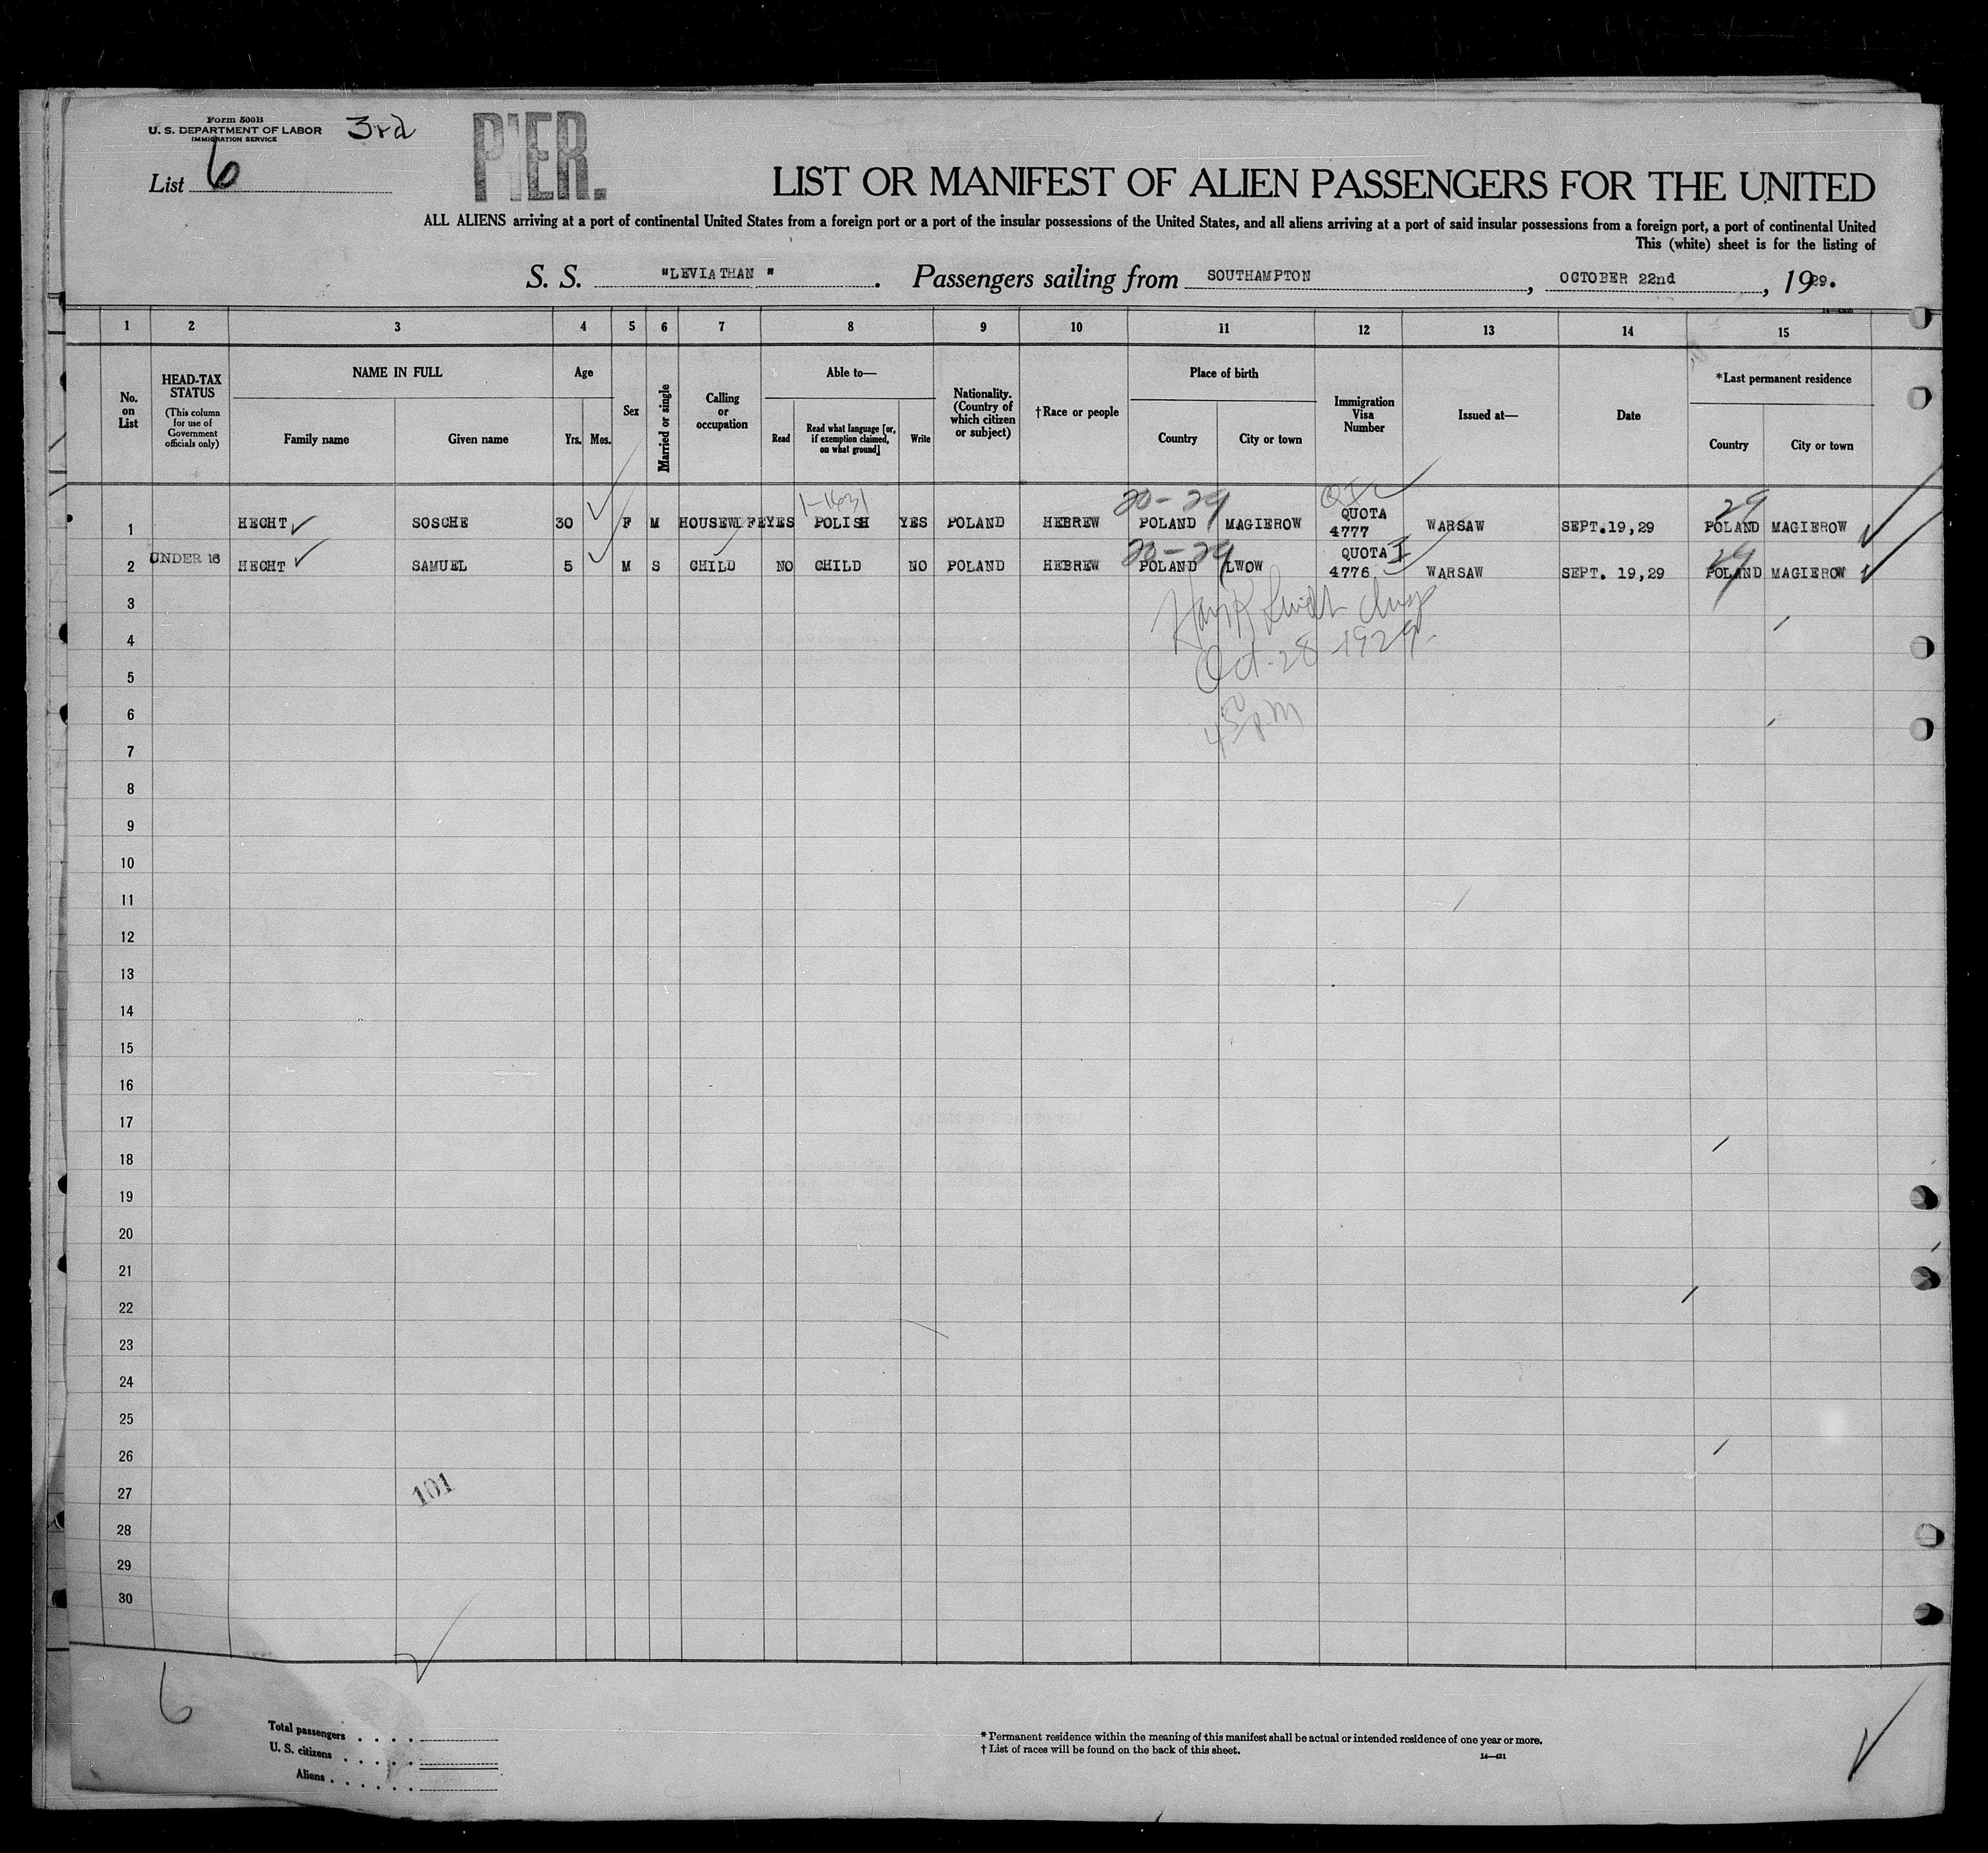 Form 500B
U. S. DEPARTMENT OF LABOR
IMMIGRATION SERVICE
3rd
PIER.
List 6
LIST OR MANIFEST OF ALIEN PASSENGERS FOR THE UNITED
ALL ALIENS arriving at a port of continental United States from a foreign port or a port of the insular possessions of the United States, and all aliens arriving at a port of said insular possessions from a foreign port, a port of continental United
This (white) sheet is for the listing of
S. S. "LEVIATHAN". Passengers sailing from SOUTHAMPTON, OCTOBER 22nd, 1929.
1 2 3 4 5 6 7 8 9 10 11 12 13 14 15
No. on List
HEAD-TAX STATUS
(This column for use of Government officials only)
NAME IN FULL
Family name Given name
Age
Yrs. Mos.
Sex
Married or single
Calling or occupation
Able to—
Read
Read what language [or, if exemption claimed, on what ground]
Write
Nationality. (Country of which citizen or subject)
†Race or people
Place of birth
Country City or town
Immigration Visa Number
Issued at—
Date
*Last permanent residence
Country City or town
1-1631 20-29 29
1 HECHT SOSCHE 30 F M HOUSEWIFE YES POLISH YES POLAND HEBREW POLAND MAGIEROW QUOTA 4777 WARSAW SEPT.19,29 POLAND MAGIEROW
20-29 29
2 UNDER 16 HECHT SAMUEL 5 M S CHILD NO CHILD NO POLAND HEBREW POLAND LWOW QUOTA 4776 WARSAW SEPT. 19,29 POLAND MAGIEROW
3
4
Oct-28-1929
5
6
7
8
9
10
11
12
13
14
15
16
17
18
19
20
21
22
23
24
25
26
27
101
28
29
30
6
Total passengers
U. S. citizens
Aliens
* Permanent residence within the meaning of this manifest shall be actual or intended residence of one year or more.
† List of races will be found on the back of this sheet.
14—431